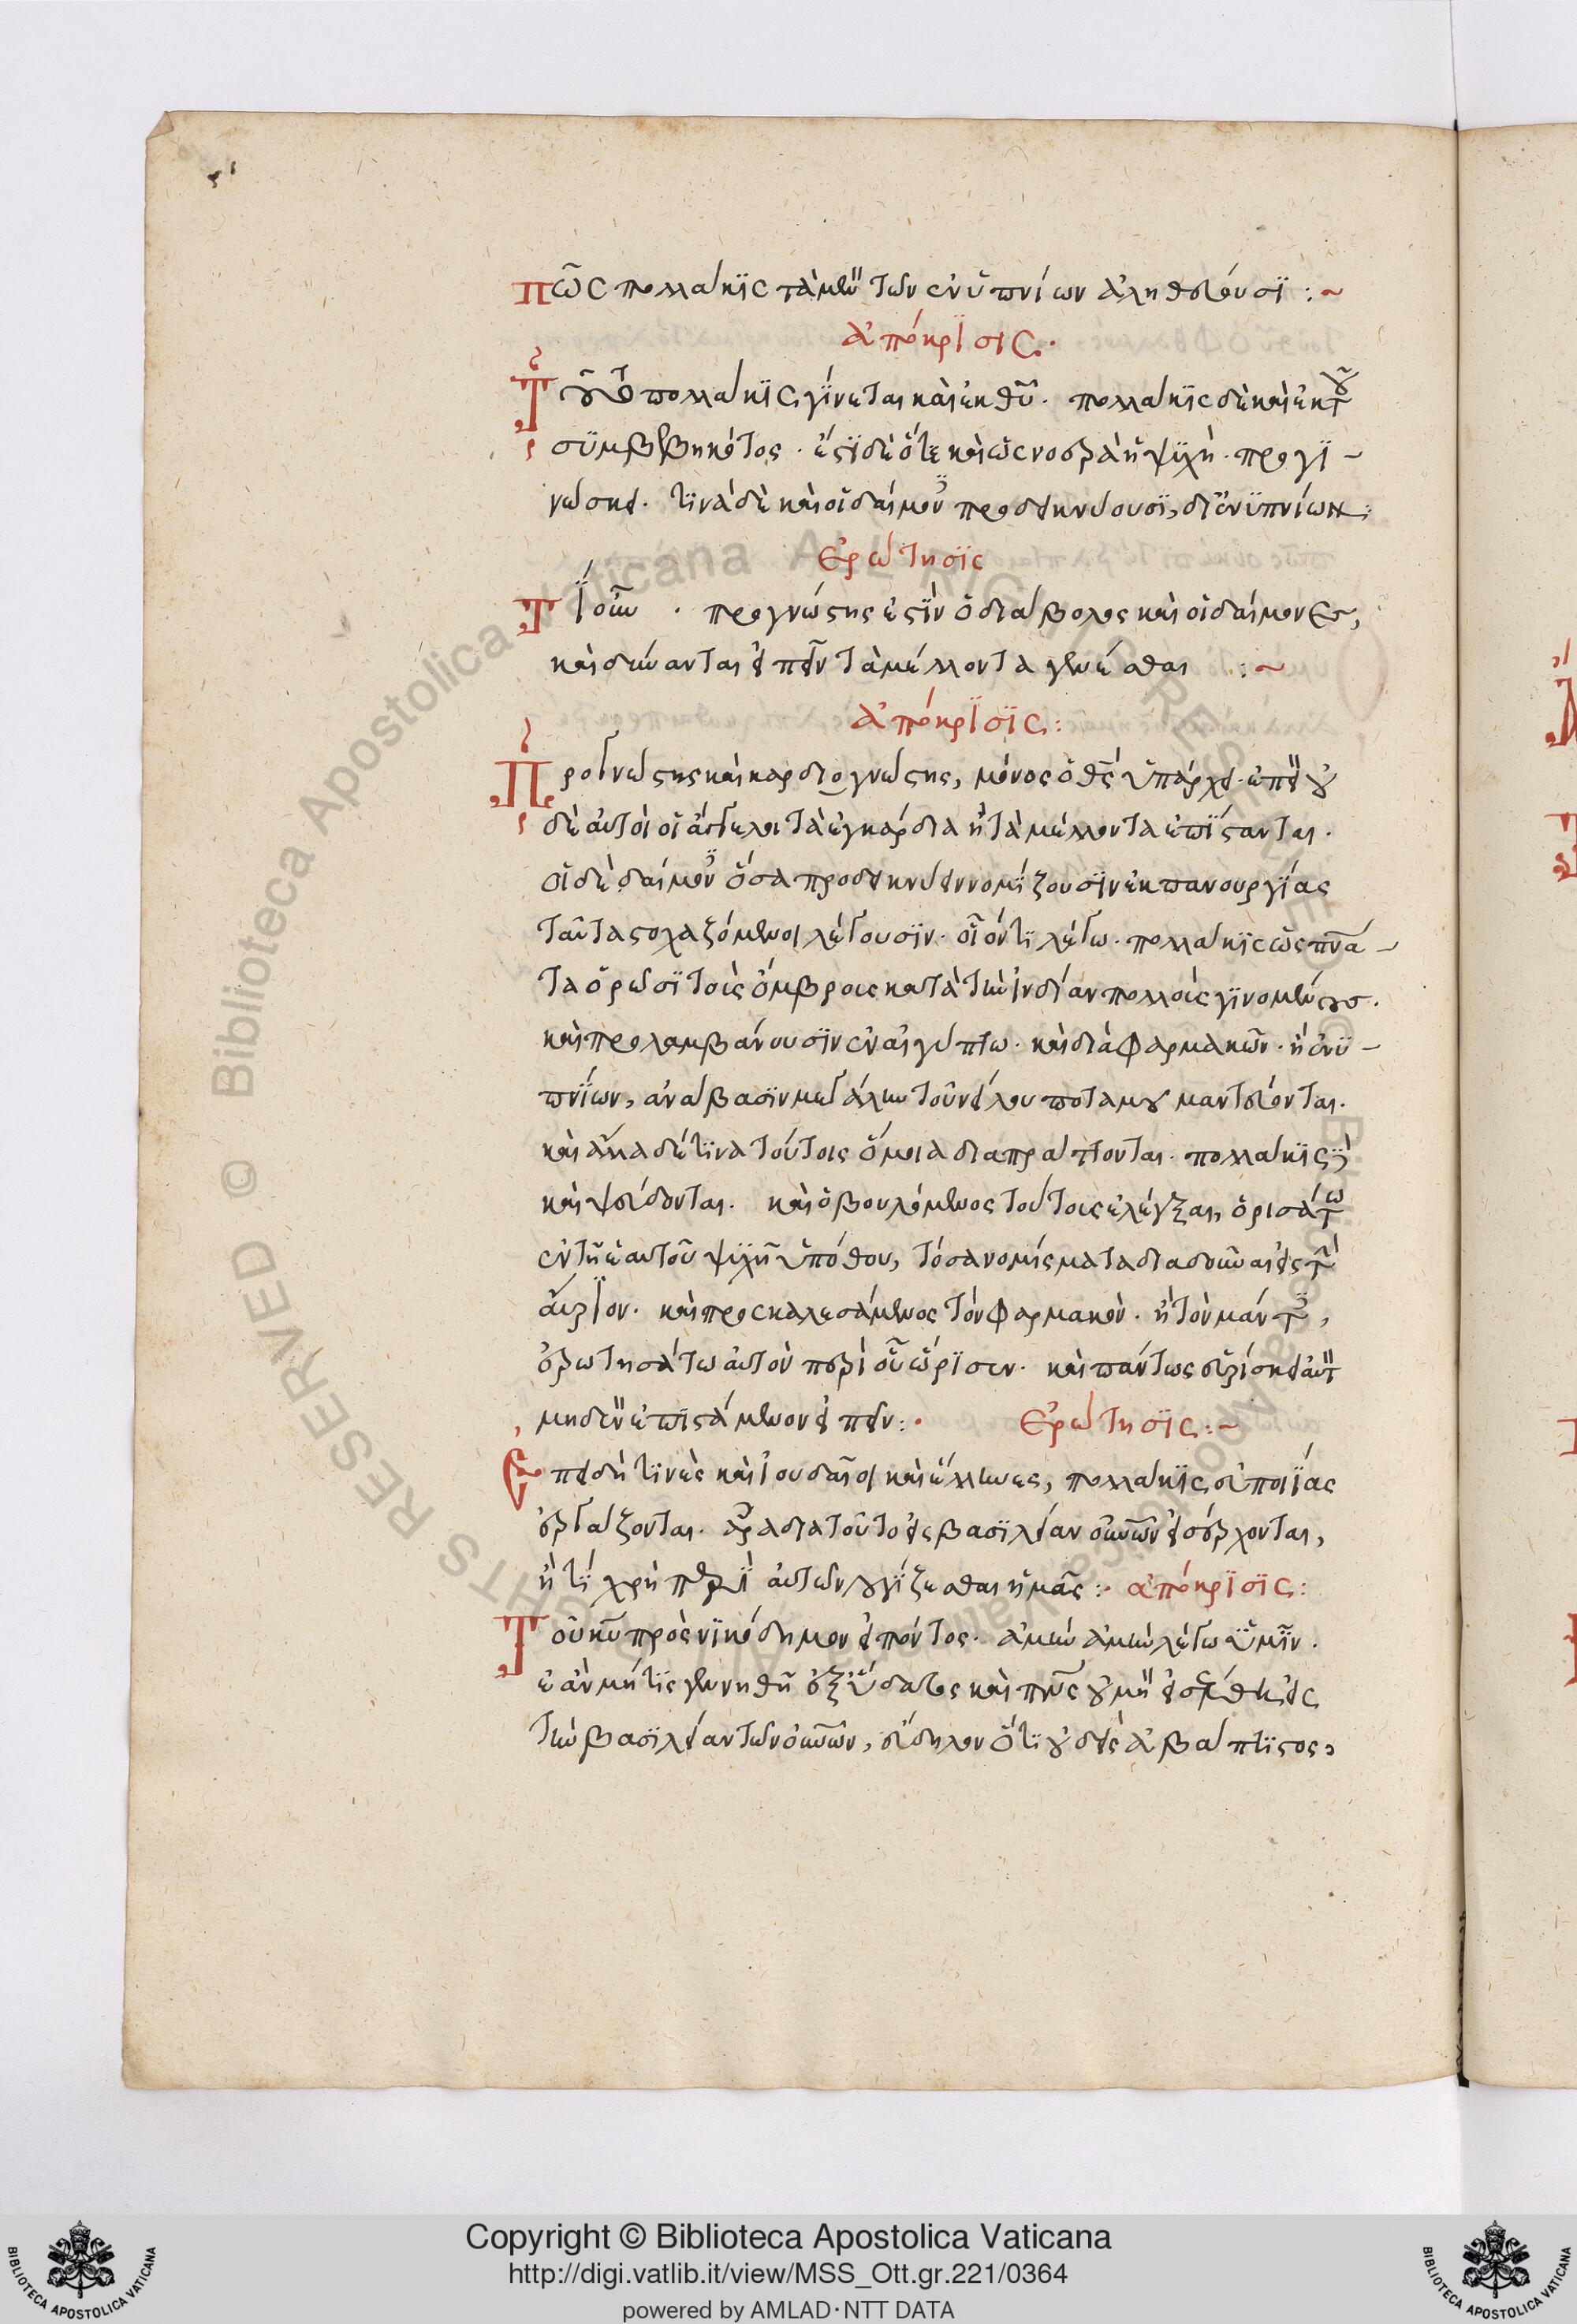 πῶς πολλάκϊς τὰ μὲν τῶν ἐνϋπνίων ἀληθεύουσϊ :~
ἀπόκρϊσις.
Τοῦτο πολλάκϊς γίνεται καὶ ἐκ θῦ. πολλάκϊς δὲ καὶ ἐκ τοῦ
σϋμβεβηκότος. ἔστϊ δὲ ὅτε καὶ ὡς νοερὰ ἡ ψϋχὴ. προγϊ-
νώσκει. τϊνὰ δὲ καὶ οἱ δαίμονες προσδεικνύουσϊ, δι' ἐνϋπνίων:
Ἐρώτησϊς
Τί οὖν. προγνώστης ἐστϊν ὁ διάβολος καὶ οἱ δαίμονες,
καὶ δύνανται εἰπεῖν τὰ μέλλοντα γενέσθαι :~
ἀπόκρϊσϊς:
Προγνώστης καὶ καρδιογνώστης, μόνος ὁ θς ὑπάρχει. ἐπεὶ οὐ
δὲ αὐτοὶ οἱ ἄγγελοι τὰ ἐγκάρδια ἢ τὰ μέλλοντα ἐπίστανται.
οἱ δὲ δαίμονες ὅσα προδεικνύειν νομίζουσϊν ἐκ πανουργίας
ταῦτα στοχαζόμενοι λέγουσϊν. οἷόν τϊ λέγω. πολλάκϊς ὡς πνά-
τα ὁρῶσϊ τοῖς ὄμβροις κατὰ τὴν ἰνδίαν πολλοῖς γϊνομένοις.
καὶ προλαμβάνουσϊν ἐν αἰγύπτω. καὶ διὰ φαρμακῶν. ἢ ἐνϋ-
πνϊων, ἀνάβασϊν μεγάλην τοῦ νείλου ποταμοῦ μαντεύονται.
καὶ ἄλλα δέ τϊνα τούτοις ὅμοια διαπράττονται. πολλάκϊς δὲ
καὶ ψεύδονται. καὶ ὁ βουλόμενος τούτοις ἐλέγξαι, ὁρισάτω
ἐν τῇ ἑαυτοῦ ψϋχῇ ὑπόθου, τόσα νομίσματα διαδοῦναι εἰς τὸν
αὔριον. καὶ προσκαλεσάμενος τὸν φαρμακὸν. ἢ τὸν μάντϊν,
ἐρωτησάτω αὐτὸν περὶ οὗ ὥρϊσεν. καὶ πάντως εὑρίσκει αὐτὸν
μηδὲν ἐπϊστάμενον εἰπεῖν:· Ἐρώτησϊς:~
Ἐπειδή τϊνὲς καὶ ἰουδαῖοι καὶ ἕλληνες, πολλάκϊς εὐποιΐας
ἐργάζονται. ἆρα διὰ τοῦτο εἰς βασϊλείαν οὐνῶν εἰσέρχονται,
ἢ τϊ χρὴ περϊ αὐτῶν λογίζεσθαι ἡμᾶς:· ἀπόκρϊσϊς:
Τοῦ κῦ πρὸς νϊκόδημον εἰπόντος. ἀμὴν ἀμὴν λέγω ὑμῖν.
ἐὰν μή τϊς γεννηθῇ ἐξ ὕδατος καὶ πνς οὐ μὴ εἰσέλθη εἰς
τὴν βασϊλείαν τῶν οὐνῶν, εὔδηλον ὅτϊ οὐδεὶς ἀβάπτϊστος,
Copyright © Biblioteca Apostolica Vaticana
http://digi.vatlib.it/view/MSS_Ott.gr.221/0364
powered by AMLAD·NTT DATA